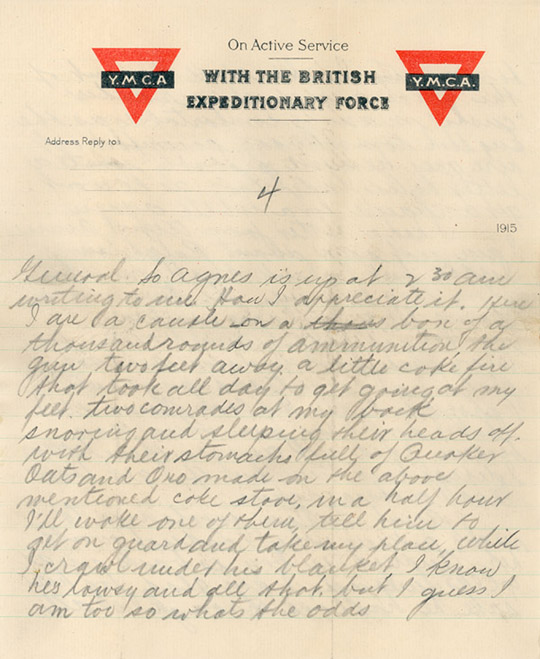 On Active Service
WITH THE BRITISH
EXPEDITIONARY FORCE
Y.M.C.A
Y.M.C.A.
Address Reply to:
4
1915
General. So Agnes is up at 2 30 am
writing to me. How I appreciate it. Here
I are a candle on a box of a
thousand rounds of ammunition, the
gun, two feet away, a little coke fire
that took all day to get going at my
feet. two comrades at my back
snoring and sleeping their heads off.
with their stomachs full of Quaker
Oats and Oxo made on the above
mentioned coke stove, in a half hour
I'll wake one of them, tell him to
get on guard and take my place, while
I crawl under his blanket, I know
hes lowsy and all that. but I guess I
am too so whats the odds